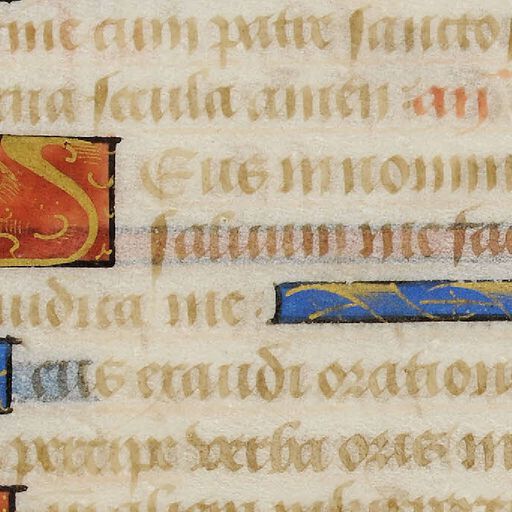 cum patre sancto
secula amen an
Eus in nomin
saluum me fac
iudica me
eus exaudi oration
percipe verba oris m